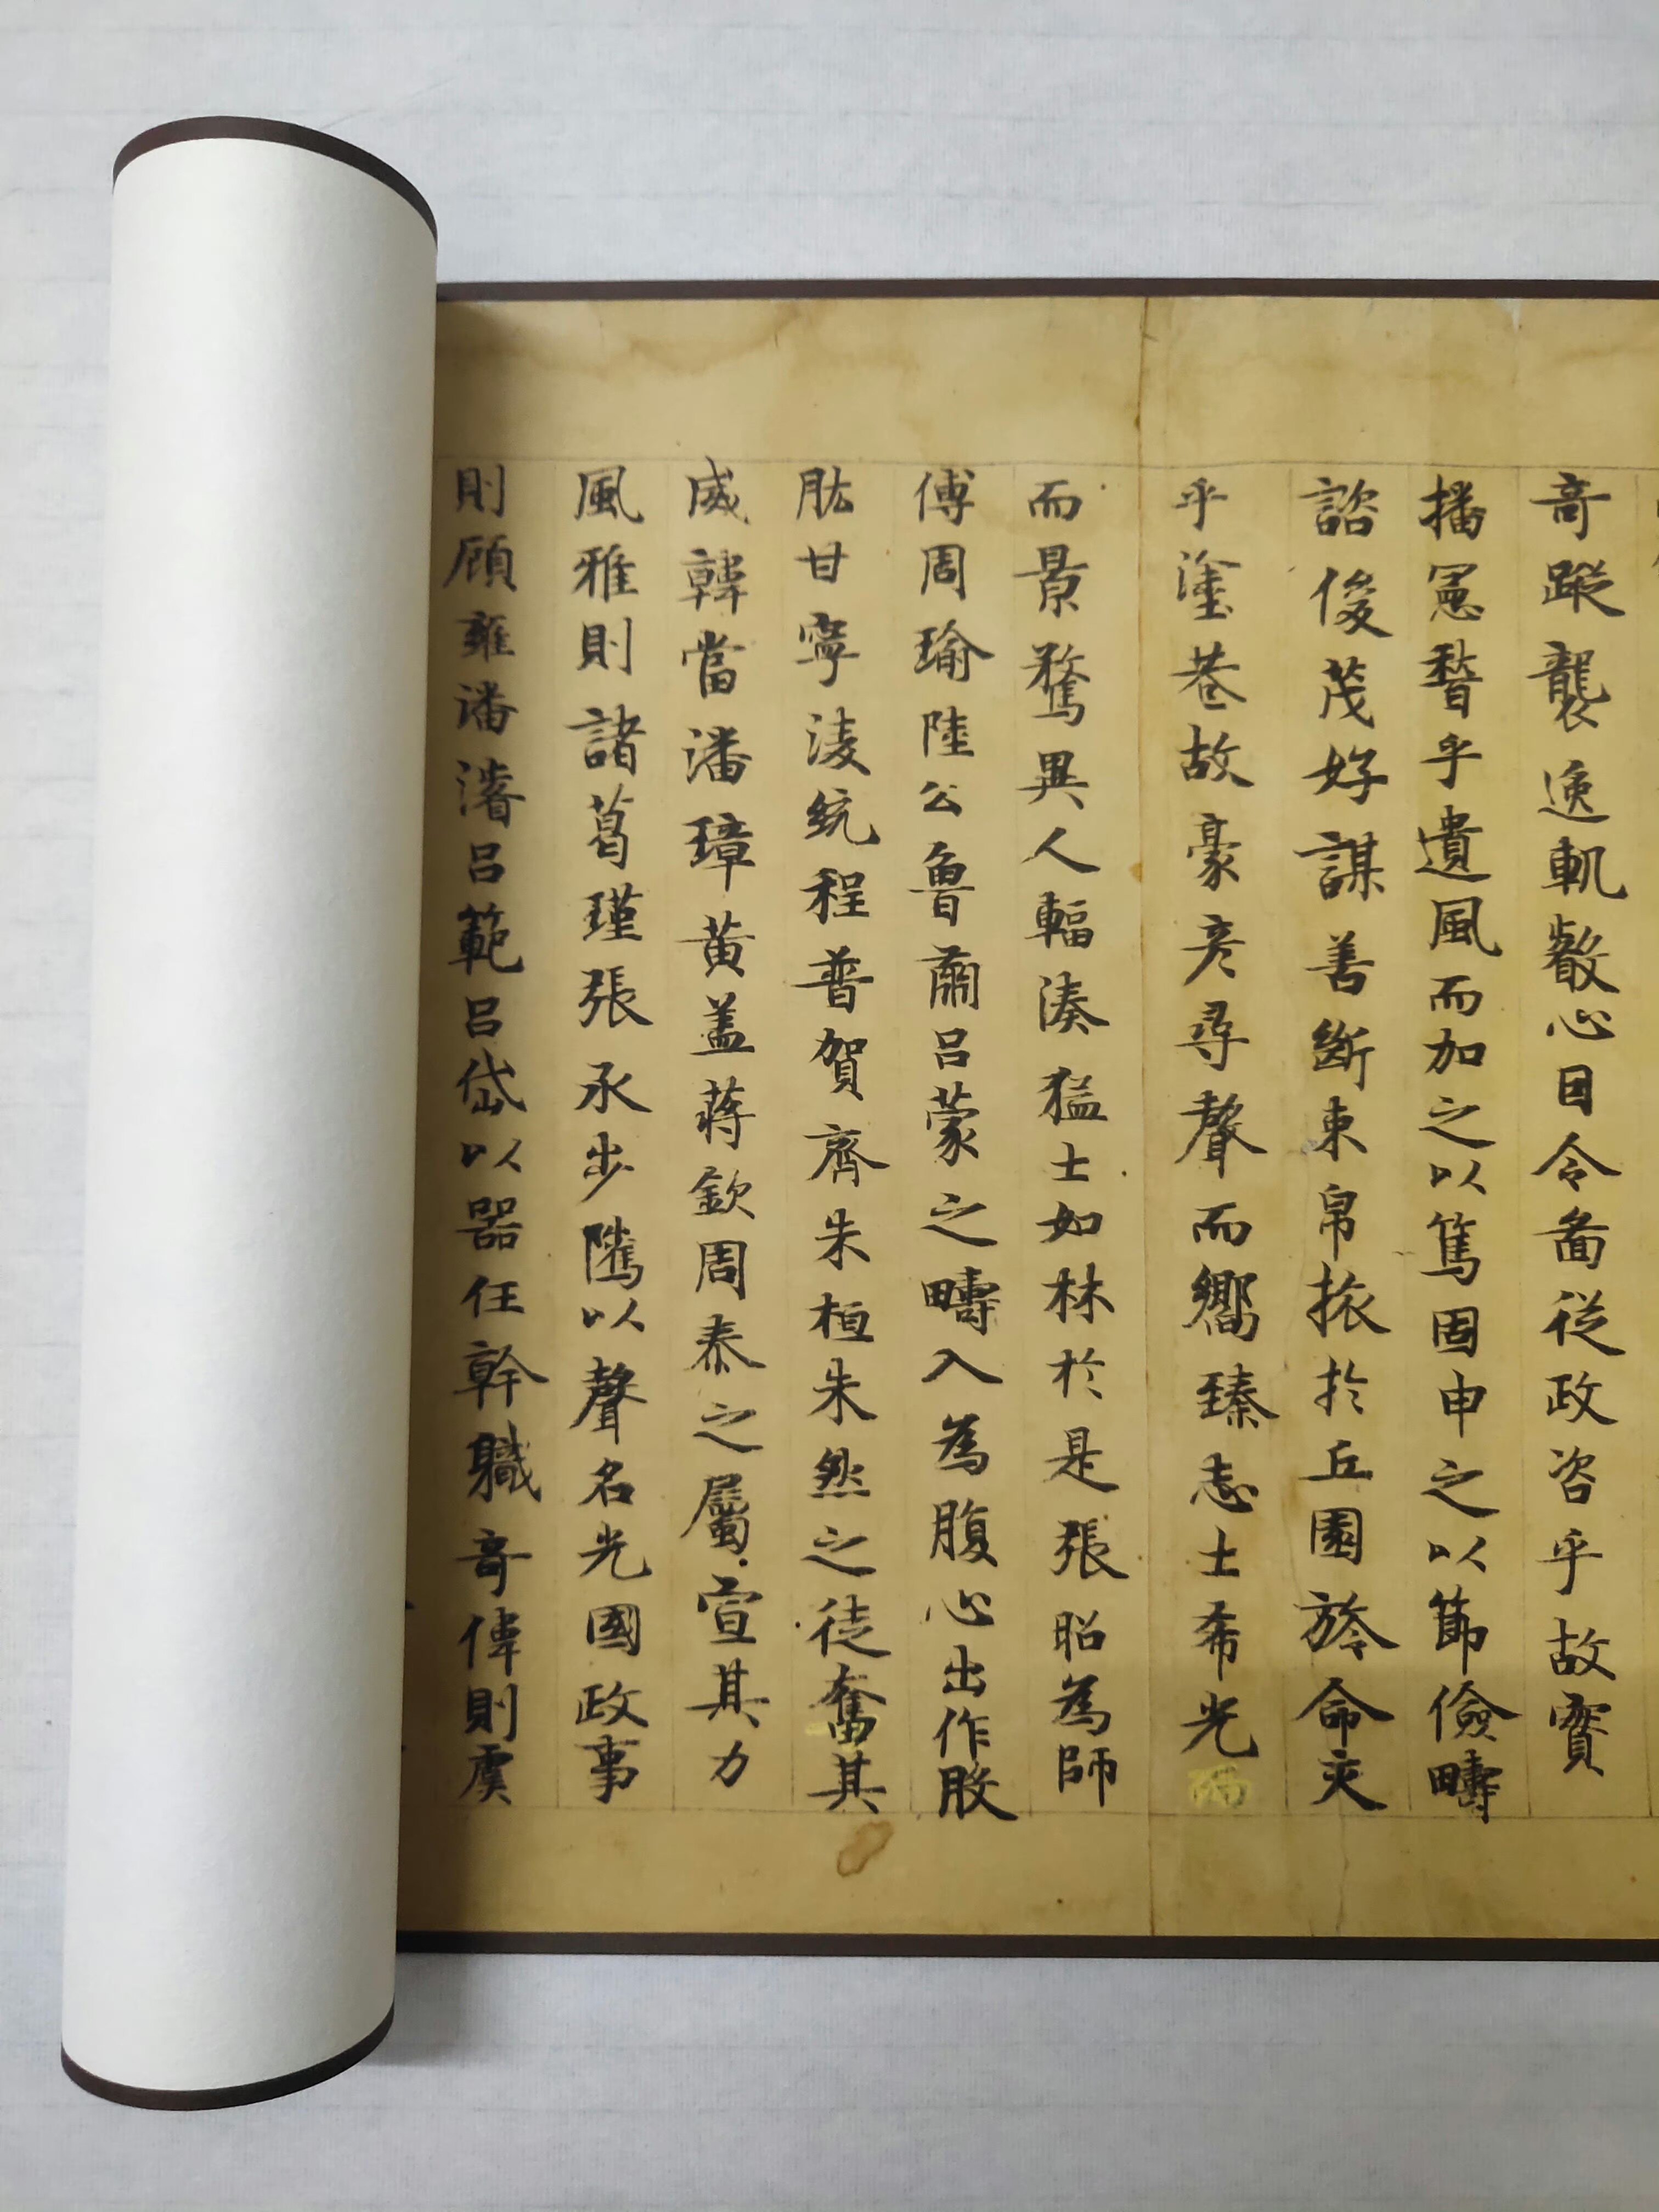 奇蹤襲逸軌叡心因令啚從政咨乎故實
播憲稽乎遺風而加之以篤固申之以節儉疇
諮俊茂好謀善斷束帛旅於丘園旌命交
乎塗巷故豪彦尋聲而嚮臻志士希光
而景騖異人輻湊猛士如林於是張昭為師
傅周瑜陸公魯肅呂蒙之疇入為腹心出作股
肱甘寧淩統程普賀齊朱桓朱然之徒奮其
威韓當潘璋黃蓋蔣欽周泰之屬宣其力
風雅則諸葛瑾張承步騭以聲名光國政事
則顧雍潘濬呂範呂岱以器任幹職奇偉則虞